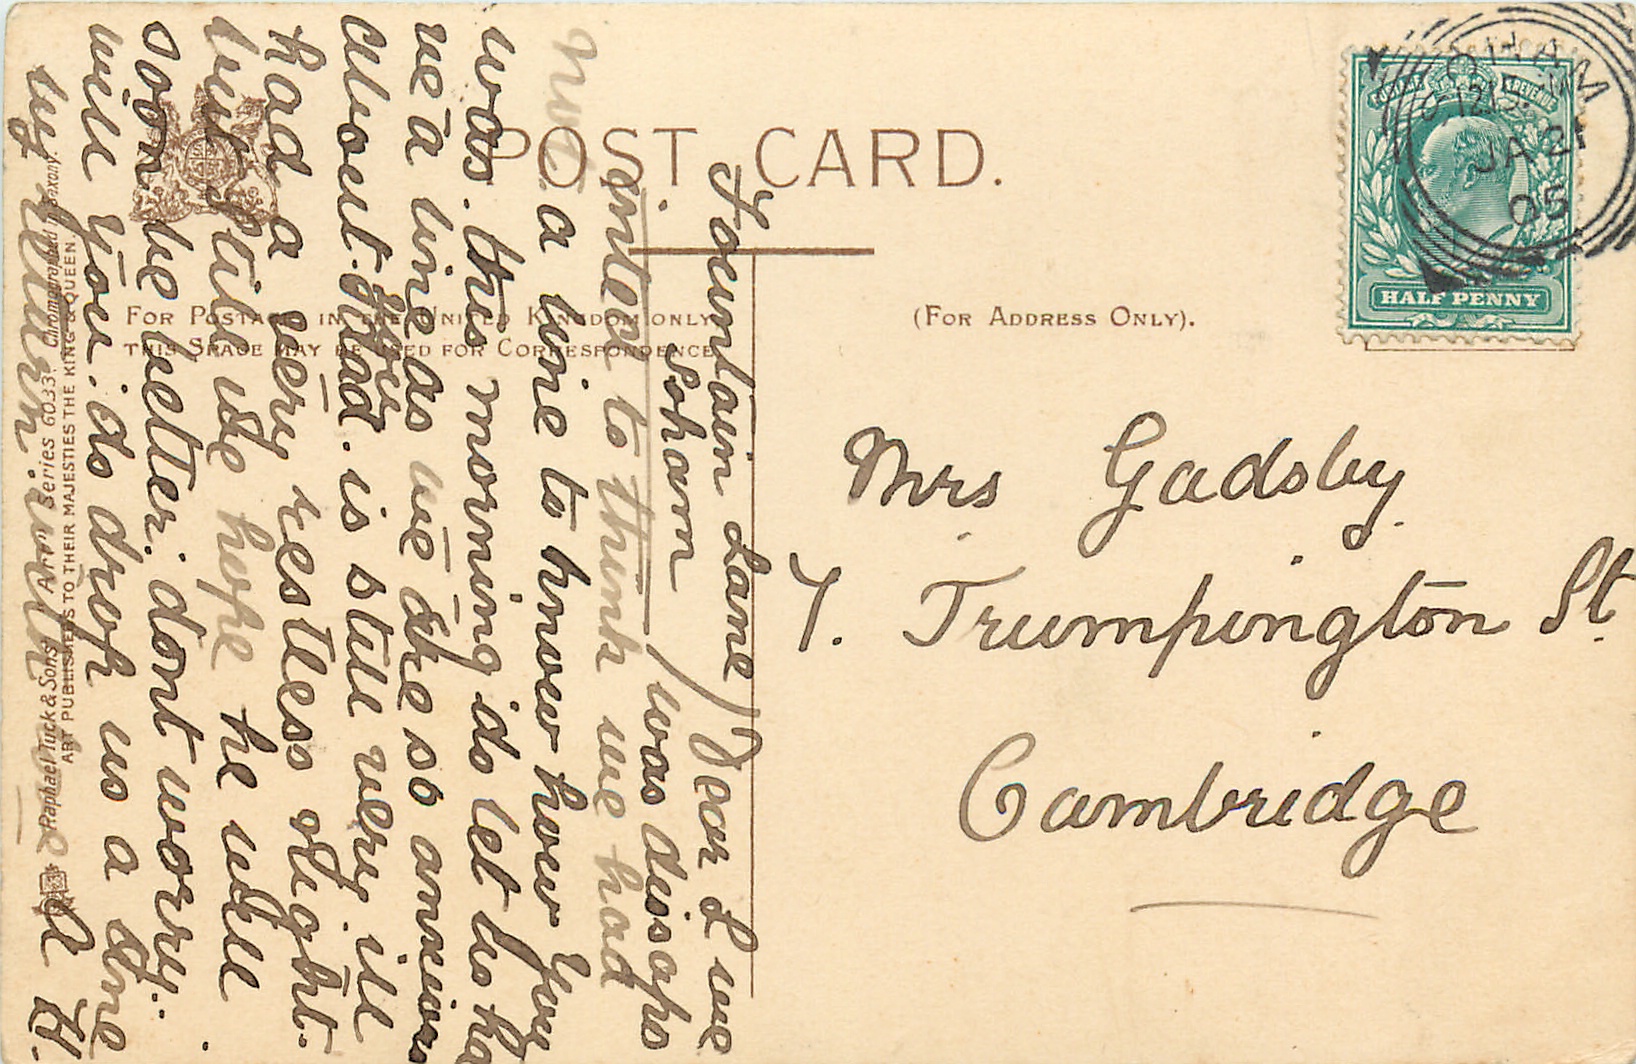 POST CARD.
FOR POSTAGE IN THE UNITED KINGDOM ONLY
THIS SPACE MAY BE USED FOR CORRESPONDENCE
(FOR ADDRESS ONLY).
HALF PENNY
JA 21
05
Mrs Gadsby
7. Trumpington St.
Cambridge
Fountain Lane
Soham
Dear L we
was disapo
inted to think we had
not a line to know how you
was. this morning do let us ha
ve a line as we are so anxious
about you
Dad. is still very ill
had a very restless night.
but still we hope he will
soon be better. dont worry.
will you. do drop us a line
by return. with
A H.
Raphael Tuck & Sons' Art Series 6033. Chromographed Saxony.
ART PUBLISHERS TO THEIR MAJESTIES THE KING & QUEEN.